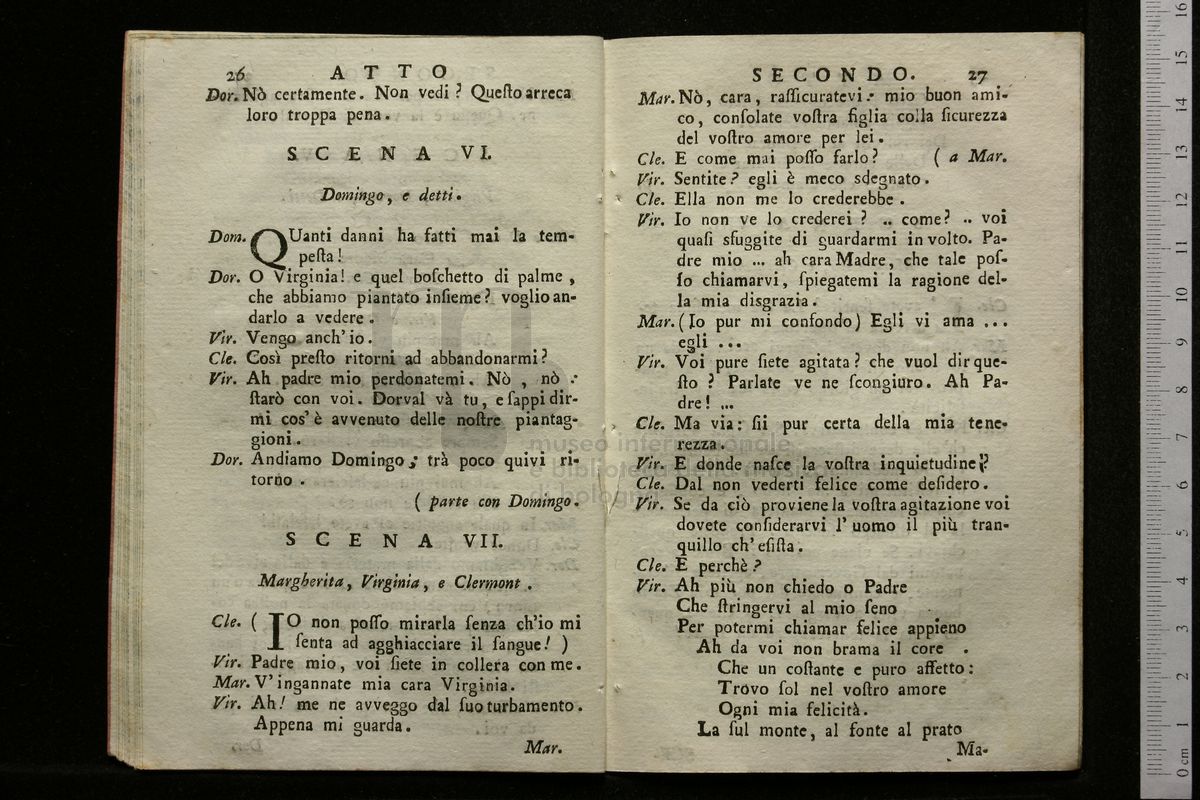 26 ATTO
Dor. Nò certamente. Non vedi? Queſto arreca
loro troppa pena.
SCENA VI.
Domingo, e detti.
Dom. QUanti danni ha fatti mai la tem-
peſta!
Dor. O Virginia! e quel boſchetto di palme,
che abbiamo piantato inſieme? voglio an-
darlo a vedere.
Vir. Vengo anch' io.
Cle. Così preſto ritorni ad abbandonarmi?
Vir. Ah padre mio perdonatemi. Nò, nò:
ſtarò con voi. Dorval và tu, e ſappi dir-
mi cos' è avvenuto delle noſtre piantag-
gioni.
Dor. Andiamo Domingo; trà poco quivi ri-
torno.
( parte con Domingo.
SCENA VII.
Margherita, Virginia, e Clermont.
Cle. ( IO non poſſo mirarla ſenza ch'io mi
ſenta ad agghiacciare il ſangue! )
Vir. Padre mio, voi ſiete in collera con me.
Mar. V' ingannate mia cara Virginia.
Vir. Ah! me ne avveggo dal ſuo turbamento.
Appena mi guarda.
Mar.
SECONDO. 27
Mar. Nò, cara, raſſicuratevi: mio buon ami-
co, conſolate voſtra figlia colla ſicurezza
del voſtro amore per lei.
Cle. E come mai poſſo farlo? ( a Mar.
Vir. Sentite? egli è meco sdegnato.
Cle. Ella non me lo crederebbe.
Vir. Io non ve lo crederei? .. come? .. voi
quaſi sfuggite di guardarmi in volto. Pa-
dre mio ... ah cara Madre, che tale poſ-
ſo chiamarvi, ſpiegatemi la ragione del-
la mia disgrazia.
Mar. (Io pur mi confondo) Egli vi ama ...
egli ...
Vir. Voi pure ſiete agitata? che vuol dir que-
ſto? Parlate ve ne ſcongiuro. Ah Pa-
dre! ...
Cle. Ma via: ſii pur certa della mia tene-
rezza.
Vir. E donde naſce la voſtra inquietudine?
Cle. Dal non vederti felice come deſidero.
Vir. Se da ciò proviene la voſtra agitazione voi
dovete conſiderarvi l' uomo il più tran-
quillo ch' eſiſta.
Cle. E perchè?
Vir. Ah più non chiedo o Padre
Che ſtringervi al mio ſeno
Per potermi chiamar felice appieno
Ah da voi non brama il core.
Che un coſtante e puro affetto:
Trovo ſol nel voſtro amore
Ogni mia felicità.
La ſul monte, al fonte al prato
Ma-
museo internazionale
e biblioteca della musica
di bologna
0 cm 1 2 3 4 5 6 7 8 9 10 11 12 13 14 15 16